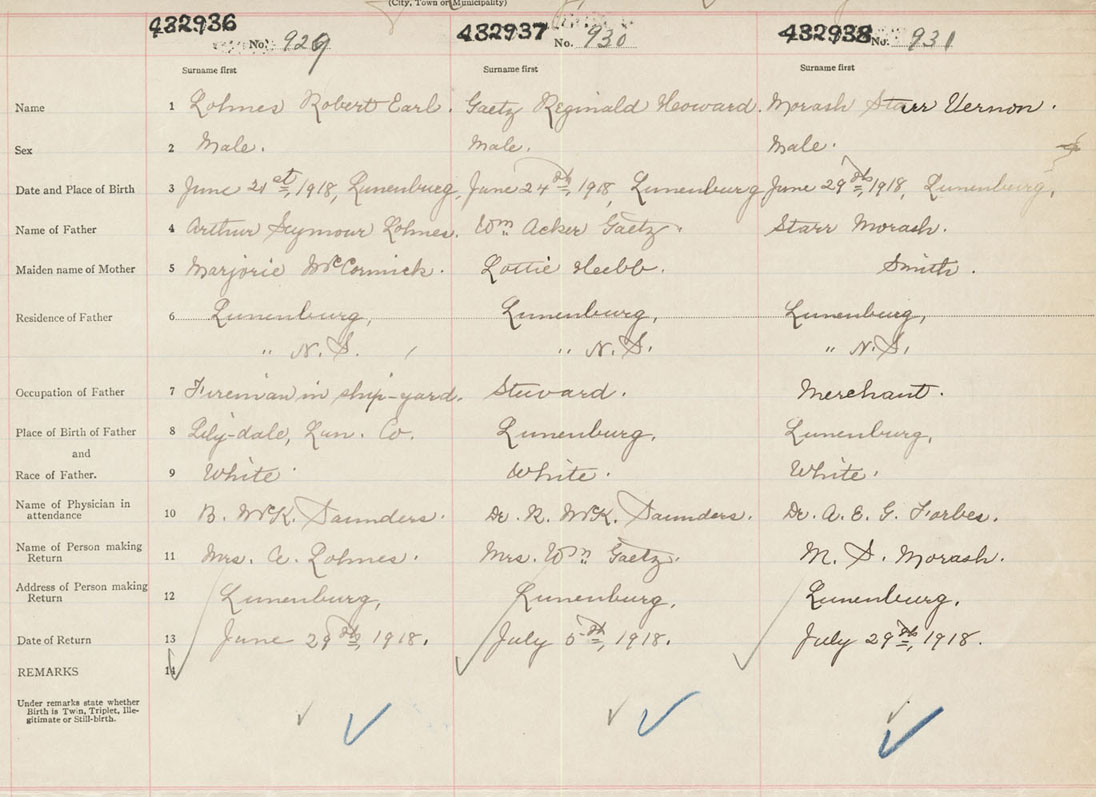 (City, Town or Municipality)
432936 No. 929 432937 No. 930 432938 No. 931
Surname first Surname first Surname first
Name 1 Lohnes Robert Earl. Gaetz Reginald Howard. Morash Starr Vernon.
Sex 2 Male. Male. Male.
Date and Place of Birth 3 June 21st, 1918, Lunenburg, June 24th, 1918, Lunenburg June 29th, 1918, Lunenburg,
Name of Father 4 Arthur Seymour Lohnes. Wm. Acker Gaetz. Starr Morash.
Maiden name of Mother 5 Marjorie McCormick. Lottie Hebb. Smith.
Residence of Father 6 Lunenburg, Lunenburg, Lunenburg,
" N.S. " N.S. " N.S.
Occupation of Father 7 Fireman in ship-yard. Steward. Merchant.
Place of Birth of Father 8 Lily-dale, Lun. Co. Lunenburg. Lunenburg,
and
Race of Father. 9 White White. White.
Name of Physician in attendance 10 B. McK. Saunders. Dr. R. McK. Saunders. Dr. A. E. G. Forbes.
Name of Person making Return 11 Mrs. A. Lohnes. Mrs. Wm. Gaetz. M. S. Morash.
Address of Person making Return 12 Lunenburg, Lunenburg, Lunenburg.
Date of Return 13 June 29th, 1918. July 5th, 1918. July 29th, 1918.
REMARKS 14
Under remarks state whether
Birth is Twin, Triplet, Ille-
gitimate or Still-birth.